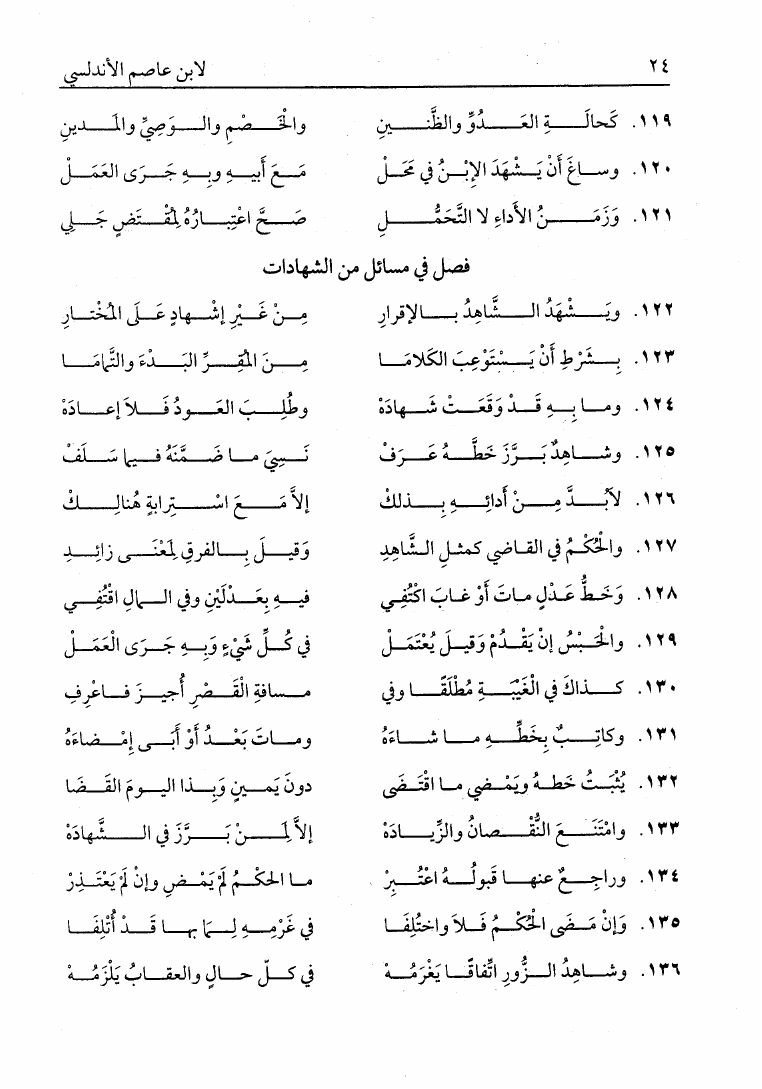 ٢٤ لابن عاصم الأندلسي
١١٩. كَحالَةِ العَدُوِّ والظَّنينِ والخَصْمِ والوَصِيِّ والمَدينِ
١٢٠. وساغَ أَنْ يَشْهَدَ الإبْنُ في مَحَلْ مَعَ أَبيهِ وبِهِ جَرَى العَمَلْ
١٢١. وَزَمَنُ الأَداءِ لا التَّحَمُّلِ صَحَّ اعْتِبارُهُ لِمُقْتَضٍ جَلِي
فصل في مسائل من الشهادات
١٢٢. ويَشْهَدُ الشَّاهِدُ بالإقرارِ مِنْ غَيْرِ إشْهادٍ عَلَى المُخْتارِ
١٢٣. بِشَرْطِ أَنْ يَسْتَوْعِبَ الكَلامَا مِنَ المُقِرِّ البَدْءَ والتَّمامَا
١٢٤. وما بِهِ قَدْ وَقَعَتْ شَهادَهْ وطُلِبَ العَودُ فَلاَ إعادَهْ
١٢٥. وشاهِدٌ بَرَّزَ خَطَّهُ عَرَفْ نَسِيَ ما ضَمَّنَهُ فيما سَلَفْ
١٢٦. لاَبُدَّ مِنْ أدائِهِ بِذلكْ إلاَّ مَعَ اسْتِرابةٍ هُنالِكْ
١٢٧. والحُكْمُ في القاضي كمثلِ الشَّاهِدِ وَقيلَ بالفرقِ لِمَعْنَى زائِدِ
١٢٨. وَخَطُّ عَدْلٍ ماتَ أَوْ غابَ اكْتُفِي فيهِ بِعَدْلَيْنِ وفي المالِ اقْتُفِي
١٢٩. والحَبْسُ إنْ يَقْدُمْ وَقيلَ يُعْتَمَلْ في كُلِّ شَيْءٍ وَبِهِ جَرَى الْعَمَلْ
١٣٠. كَذاكَ في الْغَيْبَةِ مُطْلَقًا وفي مسافةِ الْقَصْرِ أُجيزَ فاعْرِفِ
١٣١. وكاتِبٌ بِخَطِّهِ ما شاءَهُ وماتَ بَعْدُ أَوْ أَبَى إمْضاءَهُ
١٣٢. يُثْبَتُ خطهُ ويَمْضي ما اقْتَضَى دونَ يَمينٍ وَبِذا اليومَ القَضَا
١٣٣. وامْتَنَعَ النُّقْصانُ والزِّيادَهْ إلاَّ لِمَنْ بَرَّزَ في الشَّهادَهْ
١٣٤. وراجِعٌ عنها قَبولُهُ اعْتُبِرْ ما الحكمُ لَمْ يَمْضِ وإنْ لَمْ يَعْتَذِرْ
١٣٥. وَإنْ مَضَى الحُكْمُ فَلاَ واخْتُلِفَا في غَرْمِهِ لِما بها قَدْ أُتْلِفَا
١٣٦. وشاهِدُ الزُّورِ اتِّفاقًا يَغْرَمُهْ في كلّ حالٍ والعقابُ يَلْزَمُهْ